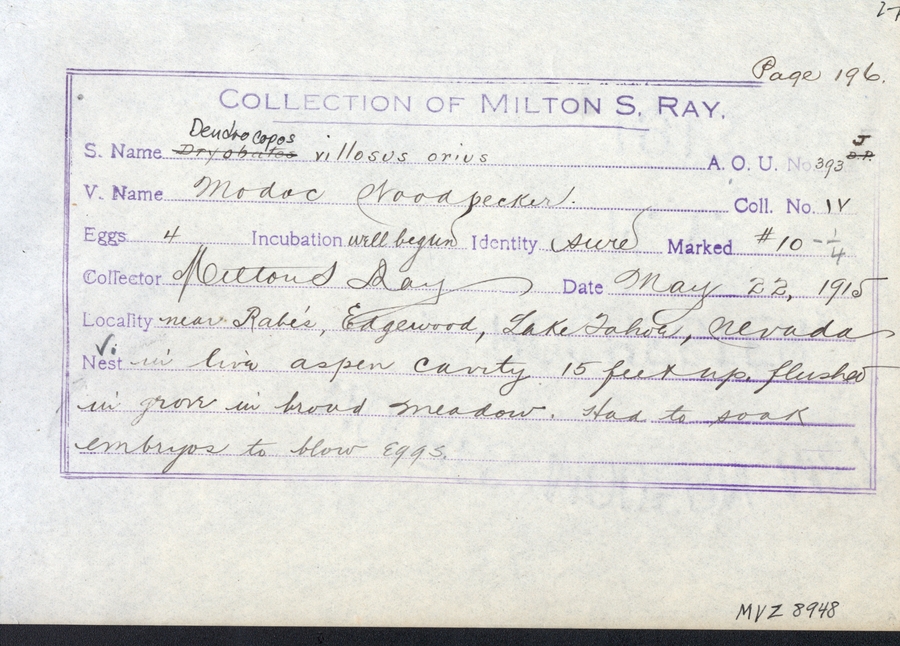 Page 196.
COLLECTION OF MILTON S. RAY.
Dendrocopos
S. Name Dryobates villosus orius A. O. U. No 393
V. Name Modoc Woodpecker. Coll. No. IV
Eggs 4 Incubation well begun Identity Sure Marked #10-1/4
Collector Milton S Ray Date May 22, 1915
Locality near Rabe's, Edgewood, Lake Tahoe, Nevada
Nest in live aspen cavity 15 feet up. flushed
in grove in broad meadow. Had to soak
embryos to blow eggs.
MVZ 8948